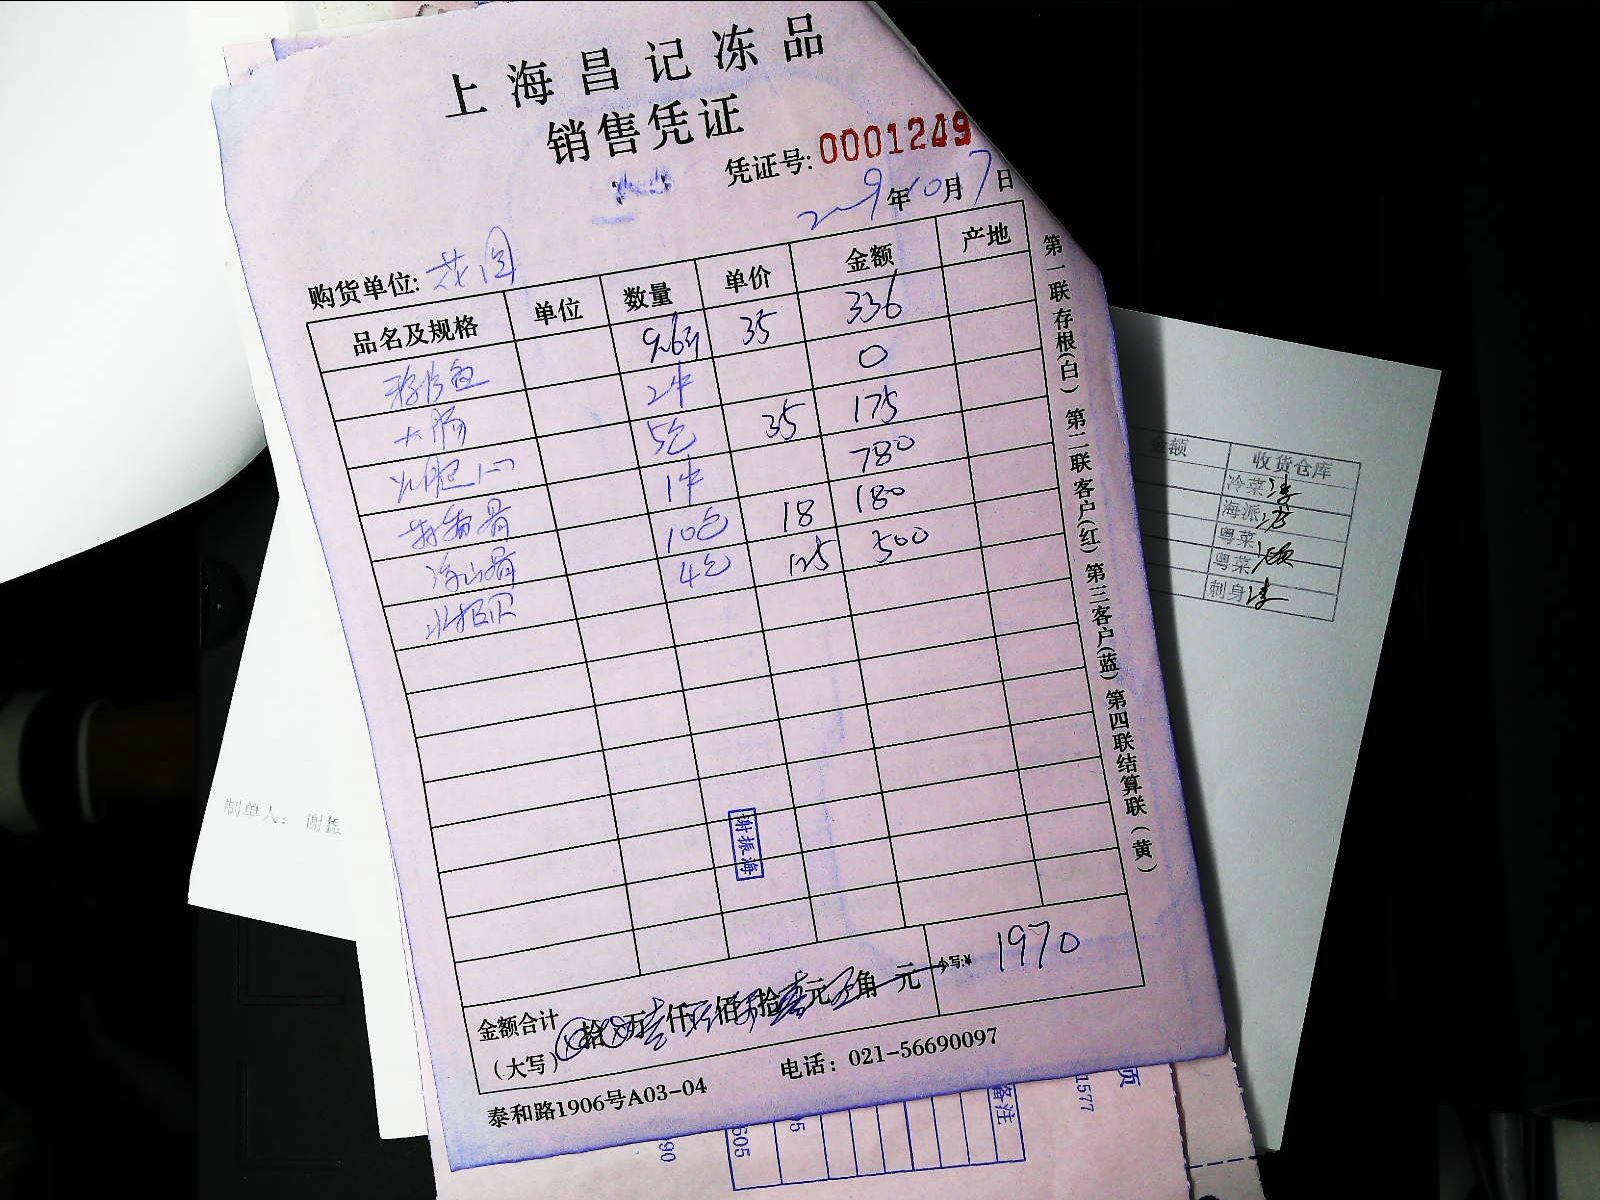 上海昌记冻品
销售凭证
凭证号: 0001249
2009年10月7日
购货单位: 花园
品名及规格 单位 数量 单价 金额 产地
9.6斤 35 336
大肠 2件 0
5包 35 175
1件 780
10包 18 180
4包 125 500
谢振海
金额合计 拾 万 壹仟 佰 拾 元 角 元 小写:¥ 1970
(大写)
泰和路1906号A03-04 电话: 021-56690097
第一联存根(白) 第二联客户(红) 第三客户(蓝) 第四联结算联(黄)
金额 收货仓库
冷菜
海派
粤菜
粤菜
刺身
制单人: 谢振
备注
页
1577
505
90